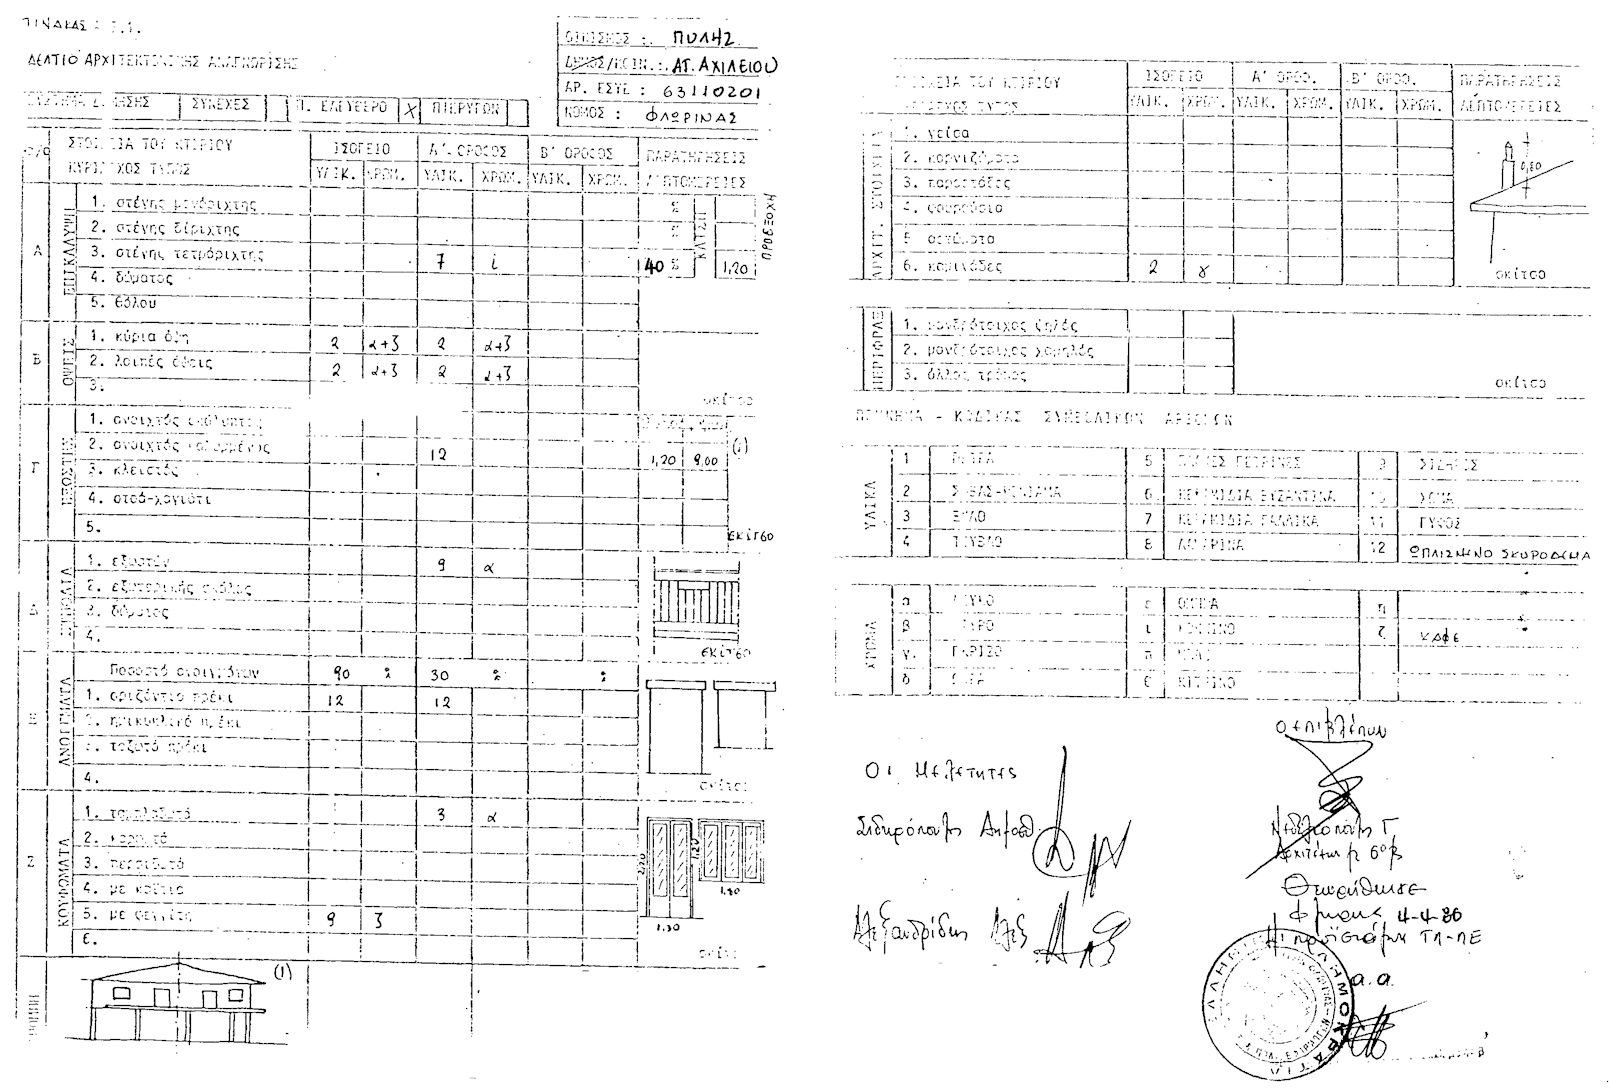 ΠΙΝΑΚΑΣ :
ΔΕΛΤΙΟ ΑΡΧΙΤΕΚΤΟΝΙΚΗΣ ΑΝΑΓΝΩΡΙΣΗΣ
ΟΙΚΙΣΜΟΣ : ΠΥΛΗ2
ΔΗΜΟΣ/ΚΟΙΝ. : ΑΓ. ΑΧΙΛΕΙΟΥ
ΑΡ. ΕΣΥΕ : 63110201
ΝΟΜΟΣ : ΦΛΩΡΙΝΑΣ
ΣΥΝΕΧΕΣ Π. ΕΛΕΥΘΕΡΟ X ΠΤΕΡΥΓΩΝ
α/α ΣΤΟΙΧΕΙΑ ΤΟΥ ΚΤΙΡΙΟΥ ΙΣΟΓΕΙΟ Α' ΟΡΟΦΟΣ Β' ΟΡΟΦΟΣ ΠΑΡΑΤΗΡΗΣΕΙΣ
ΚΥΡΙΑΡΧΟΣ ΤΥΠΟΣ ΥΛΙΚ. ΧΡΩΜ. ΥΛΙΚ. ΧΡΩΜ. ΥΛΙΚ. ΧΡΩΜ. ΛΕΠΤΟΜΕΡΕΙΕΣ
Α ΕΠΙΚΑΛΥΨΗ
1. στέγης μονόριχτης %
2. στέγης δίριχτης %
3. στέγης τετράριχτης 7 i 40 % 1,20
ΚΛΙΣΗ
ΠΡΟΕΞΟΧΗ
4. δώματος
5. θόλου
Β ΟΨΕΙΣ
1. κύρια όψη 2 α+ζ 2 α+ζ
2. λοιπές όψεις 2 α+ζ 2 α+ζ
3.
σκίτσο
Γ ΕΞΩΣΤΕΣ
1. ανοιχτός ακάλυπτος
2. ανοιχτός καλυμμένος 12 1,20 9,00 (1)
3. κλειστός
4. στοά-χαγιάτι
5.
σκίτσο
Δ ΣΤΗΘΑΙΑ
1. εξωστών 9 α
2. εξωτερικής σκάλας
3. δώματος
4.
σκίτσο
Ε ΑΝΟΙΓΜΑΤΑ
Ποσοστό ανοιγμάτων 90 % 30 % %
1. οριζόντιο πρέκι 12 12
2. ημικυκλικό πρέκι
3. τοξωτό πρέκι
4.
σκίτσο
Ζ ΚΟΥΦΩΜΑΤΑ
1. ταμπλαδωτό 3 α
2. καρφωτό
3. περσιδωτό
4. με καΐτια
5. με φεγγίτη 9 ζ
6.
2,20 1,30 1,20 1,80
σκίτσο
(1)
ΣΤΟΙΧΕΙΑ ΤΟΥ ΚΤΙΡΙΟΥ ΙΣΟΓΕΙΟ Α' ΟΡΟΦ. Β' ΟΡΟΦ. ΠΑΡΑΤΗΡΗΣΕΙΣ
ΚΥΡΙΑΡΧΟΣ ΤΥΠΟΣ ΥΛΙΚ. ΧΡΩΜ. ΥΛΙΚ. ΧΡΩΜ. ΥΛΙΚ. ΧΡΩΜ. ΛΕΠΤΟΜΕΡΕΙΕΣ
ΑΡΧΙΤ. ΣΤΟΙΧΕΙΑ
1. γείσα
2. κορνιζώματα
3. παραστάδες
4. φουρούσια
5. αετώματα
6. καμινάδες 2 γ
0,80
σκίτσο
ΠΕΡΙΦΡΑΞ
1. μανδρότοιχος ψηλός
2. μανδρότοιχος χαμηλός
3. άλλος τρόπος
σκίτσο
ΥΠΟΜΝΗΜΑ - ΚΩΔΙΚΑΣ ΣΥΜΒΟΛΙΚΩΝ ΑΡΙΘΜΩΝ
ΥΛΙΚΑ
1 ΠΕΤΡΑ 5 ΠΛΑΚΕΣ ΠΕΤΡΙΝΕΣ 9 ΣΙΔΗΡΟΣ
2 ΣΟΒΑΣ-ΚΟΝΙΑΜΑ 6 ΚΕΡΑΜΙΔΙΑ ΒΥΖΑΝΤΙΝΑ 10 ΧΩΜΑ
3 ΞΥΛΟ 7 ΚΕΡΑΜΙΔΙΑ ΓΑΛΛΙΚΑ 11 ΓΥΨΟΣ
4 ΤΟΥΒΛΟ 8 ΛΑΜΑΡΙΝΑ 12 ΩΠΛΙΣΜΕΝΟ ΣΚΥΡΟΔΕΜΑ
ΧΡΩΜΑ
α ΛΕΥΚΟ ε ΩΜΠΡΑ
β ΜΑΥΡΟ ι ΚΟΚΚΙΝΟ ζ ΚΑΦΕ
γ ΓΚΡΙΖΟ
δ ΩΧΡΑ ΚΙΤΡΙΝΟ
Οι Μελετητές
Σιδηρόπουλος Δημοσθ.
Αλεξανδρίδης Αλέξ
Ο επιβλέπων
Αρχιτέκτων με 6ο β
Θεωρήθηκε
Φλώρινα 4-4-86
Η προϊσταμένη ΤΠ-ΠΕ
α.α.
ΕΛΛΗΝΙΚΗ ΔΗΜΟΚΡΑΤΙΑ